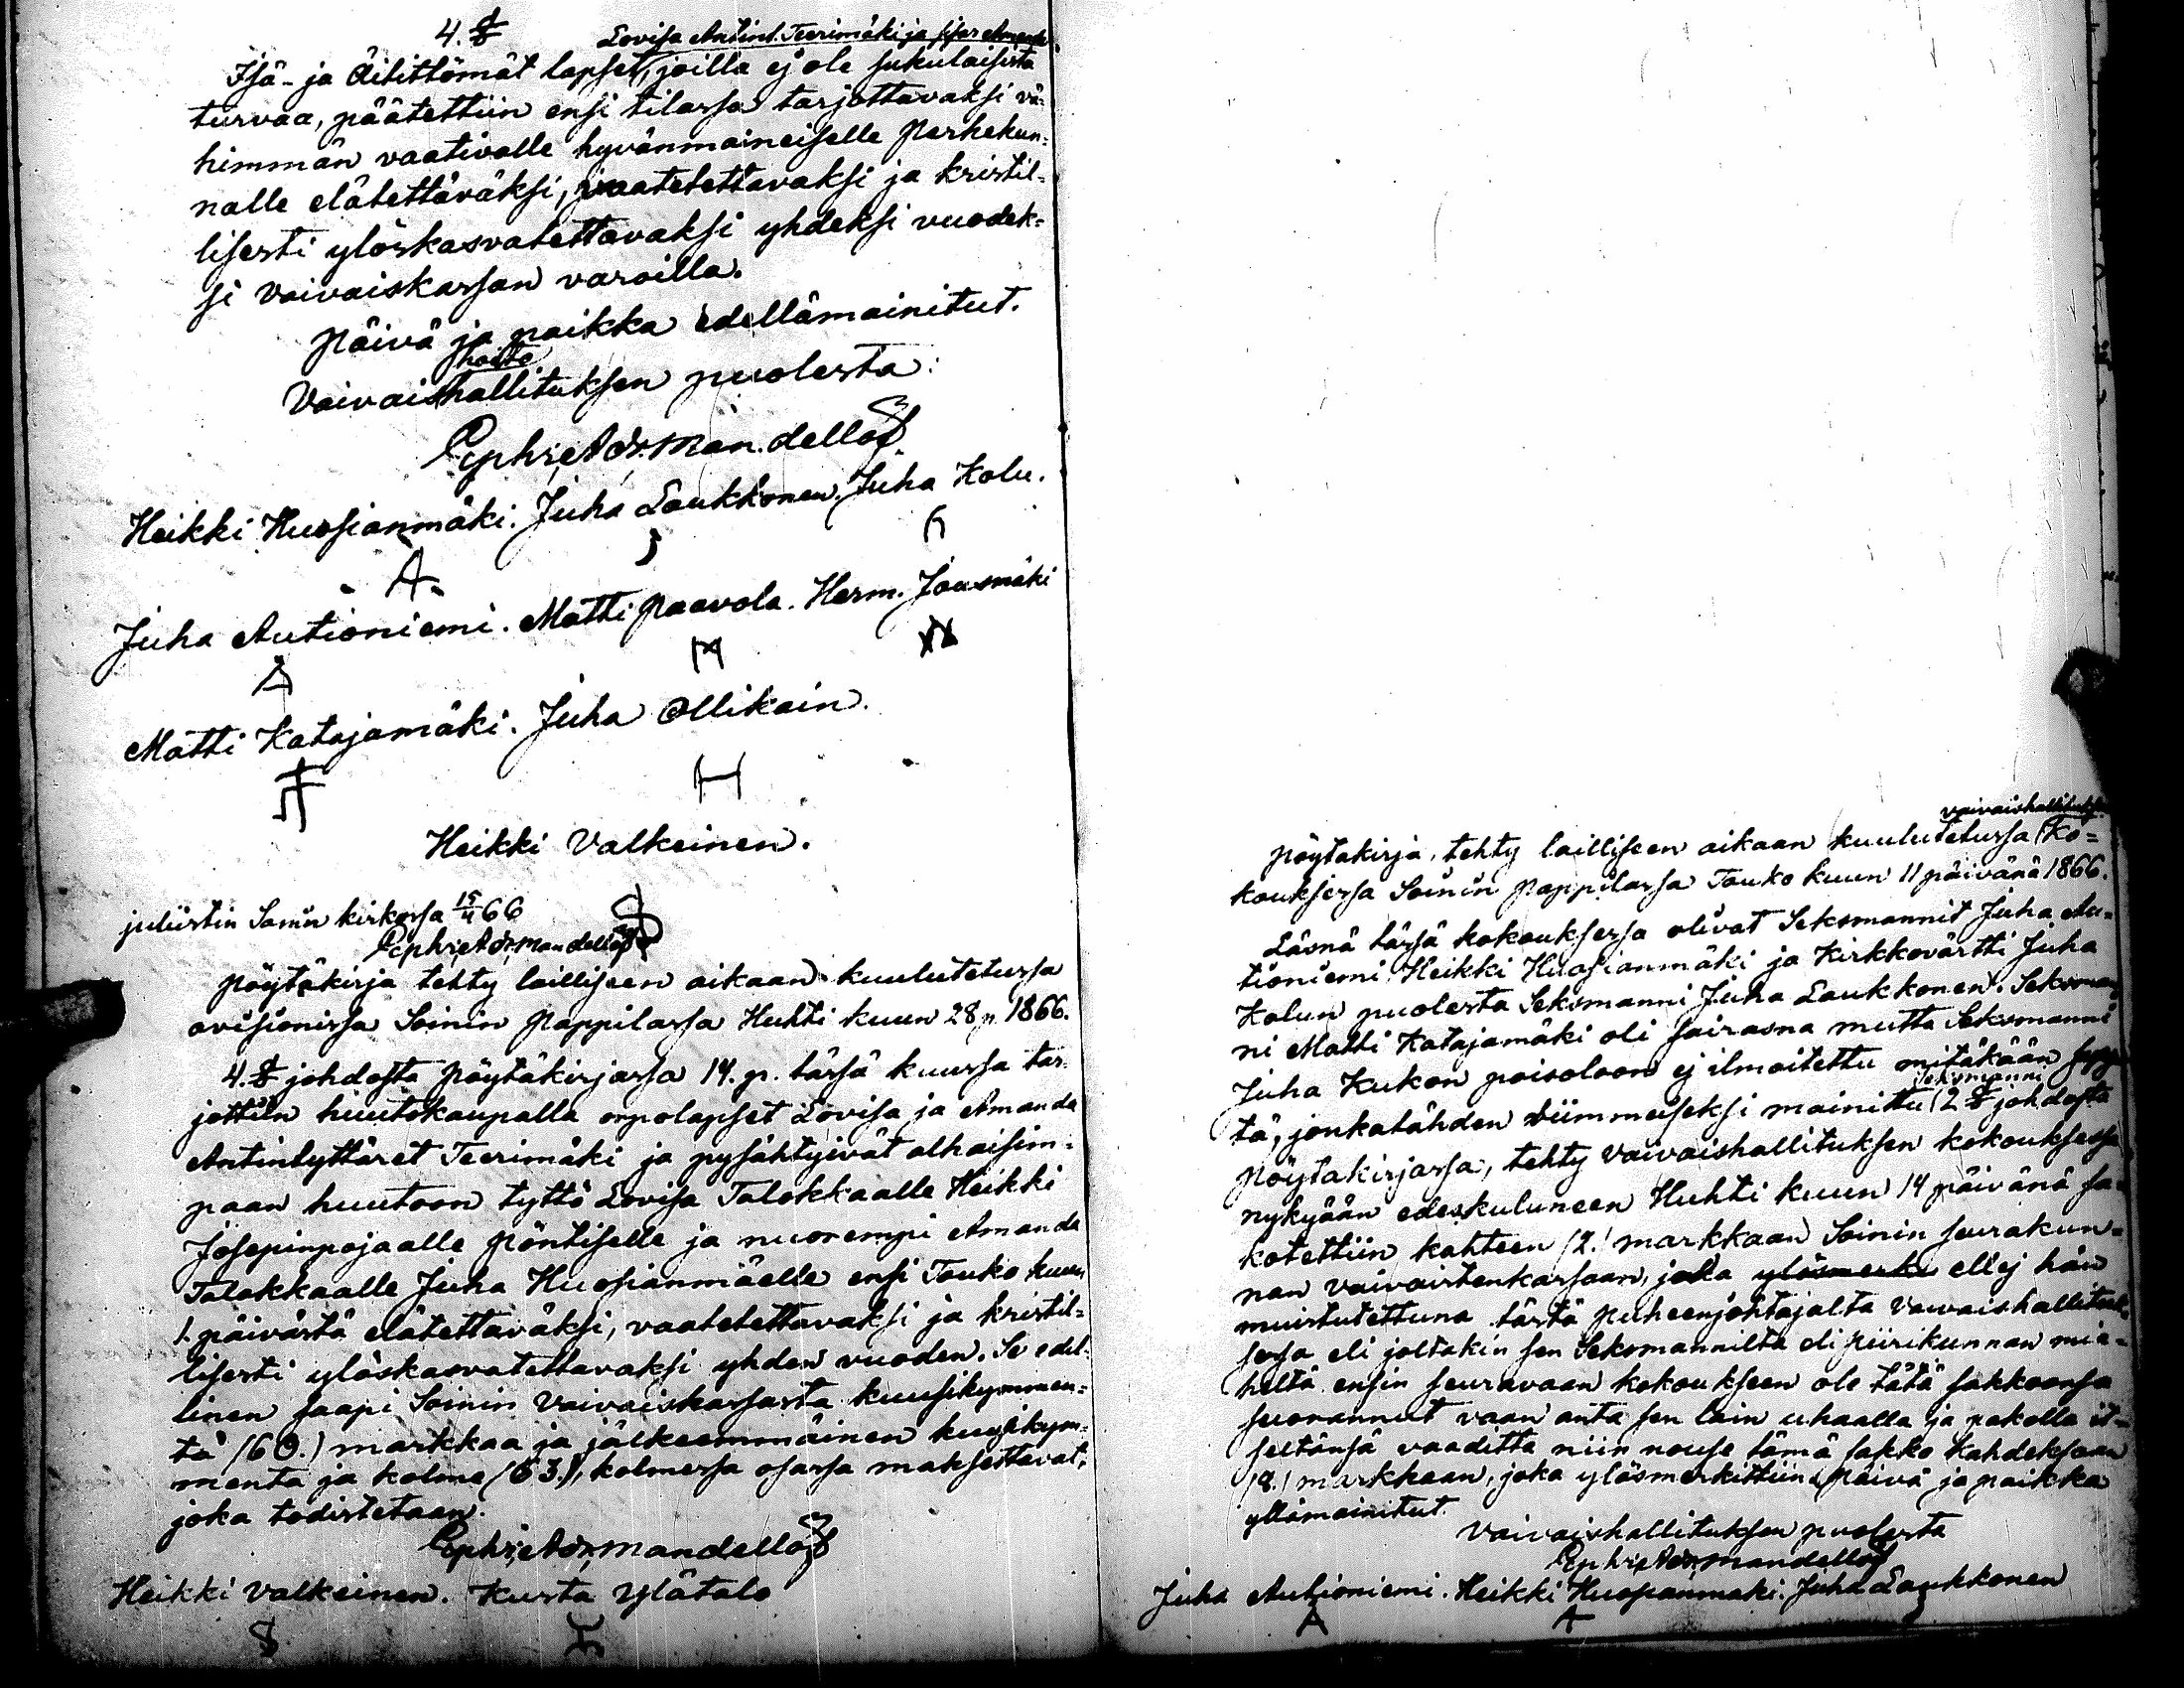 4. §
Lovisa Antint. Teerimäki ja sisar Amanda
Isä- ja Äitittömät lapset, joilla ej ole sukulaisista
turvaa, päätettiin ensi tilassa tarjottavaksi vä-
himmän vaativalle hyvänmaineiselle Perhekun-
nalle elätettäväksi, vaatetettavaksi ja kristil-
lisesti ylöskasvatettavaksi yhdeksi vuodek-
si Vaivaiskassan varoilla.
Päivä ja paikka edellämainitut.
hoito
Vaivaishallituksen puolesta:
Heikki Huosianmäki. Juha Laukkonen. Juha Kolu.
A
Juha Autioniemi. Matti Paavola. Herm. Jousmäki
Matti Katajamäki. Juha Ollikain.
H
Heikki Valkeinen.
julistin Soinin kirkossa 15/4 66
Pöytäkirja tehty lailliseen aikaan kuulutetussa
ovisionissa Soinin Pappilassa Huhti kuun 28 p. 1866.
4. § johdosta Pöytäkirjassa 14. p. tässä kuussa tar-
jottiin huutokaupalla orpolapset Lovisa ja Amanda
Antintyttäret Teerimäki ja pysähtyivät alhaisim-
paan huutoon tyttö Lovisa Talokkaalle Heikki
Josepinpojaalle Pöntiselle ja nuorempi Amanda
Talokkaalle Juha Huosianmäelle ensi Touko kuun
1. päivästä elätettäväksi, vaatetettavaksi ja kristil-
lisesti ylöskasvatettavaksi yhden vuoden. Se edel-
linen saapi Soinin Vaivaiskassasta kuusikymmen-
tä (60.) markkaa ja jälkeemmäinen kuusikym-
mentä ja kolme (63.), kolmessa osassa maksettavat,
joka todistetaan.
Heikki Valkeinen. Kusta Ylätalo
vaivaishallituks.
Pöytäkirja, tehty lailliseen aikaan kuulutetussa Ko-
kouksessa Soinin Pappilassa Touko kuun 11 päivänä 1866.
Läsnä tässä kokouksessa olivat Seksmannit Juha Au-
tioniemi Heikki Huosianmäki ja Kirkkovärtti Juha
Kolun puolesta Seksmanni Juha Laukkonen. Seksman-
ni Matti Katajamäki oli sairasna mutta Seksmanni
Juha Kukon poisoloon ej ilmoitettu mitäkään syy-
Seksmanni
tä, jonkatähden viimmeiseksi mainittu 2 § johdosta
Pöytäkirjassa, tehty Vaivaishallituksen kokouksessa
nykyään edeskuluneen Huhti kuun 14 päivänä sa-
kotettiin kahteen (2.) markkaan Soinin seurakun-
nan Vaivaistenkassaan, joka ylösmerk ell ej hän
muistutettuna tästä Puheenjohtajalta Vaivaishallituk-
sessa eli joltakin sen Seksmannilta eli Piirikunnan mie-
heltä ensin seuravaan kokoukseen ole tätä sakkoansa
suorannut vaan anta sen lain uhaalla ja pakolla it-
seltänsä vaaditta niin nouse tämä sakko kahdeksaan
(8.) markkaan, joka ylösmerkittiin. Päivä ja paikka
yllämainitut.
Vaivaishallituksen puolesta
Juha Autioniemi. Heikki Huosianmäki. Juha Laukkonen
A A